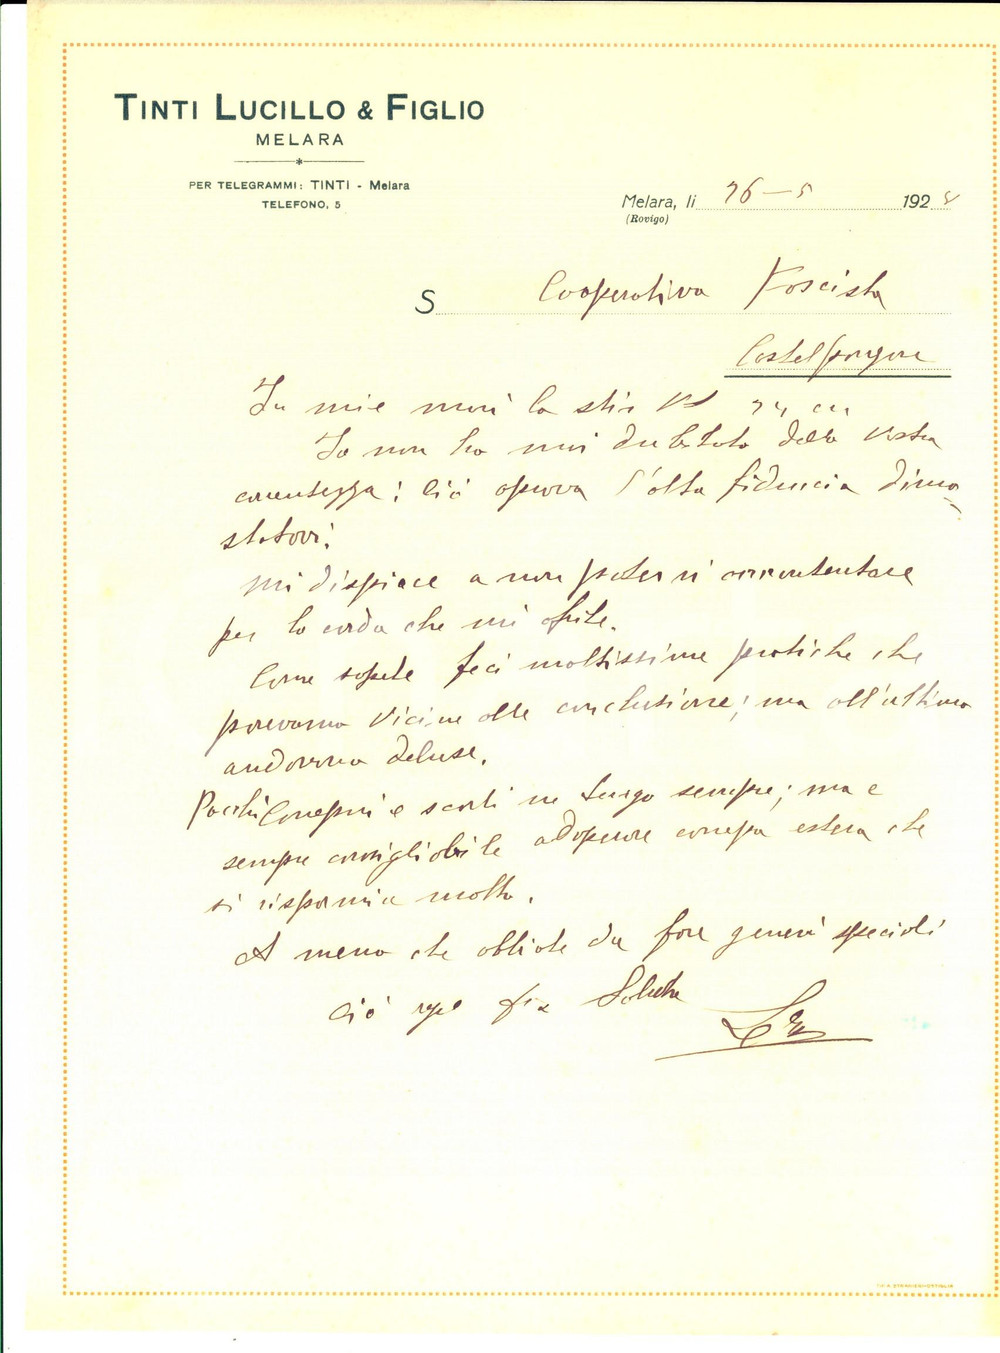 TINTI LUCILLO & FIGLIO
MELARA
PER TELEGRAMMI: TINTI - Melara
TELEFONO, 5
Melara, li 26-5 1928
(Rovigo)
S Cooperativa Fascista
In mie mani la
Io non ho mai dubitato della vostra
correntezza; ciò prova l'alta fiducia dimo-
statovi.
Mi dispiace a non potervi accontentare
per la corda che mi
Come sapete feci moltissime pratiche che
parevano vicine alle conclusione; ma all'ultimo
andarono deluse.
Canepini e scarti ne tengo sempre; ma è
sempre consigliabile adoperare canepa estera che
si risparmia molto.
A meno che abbiate da fare generi speciali
Ciò